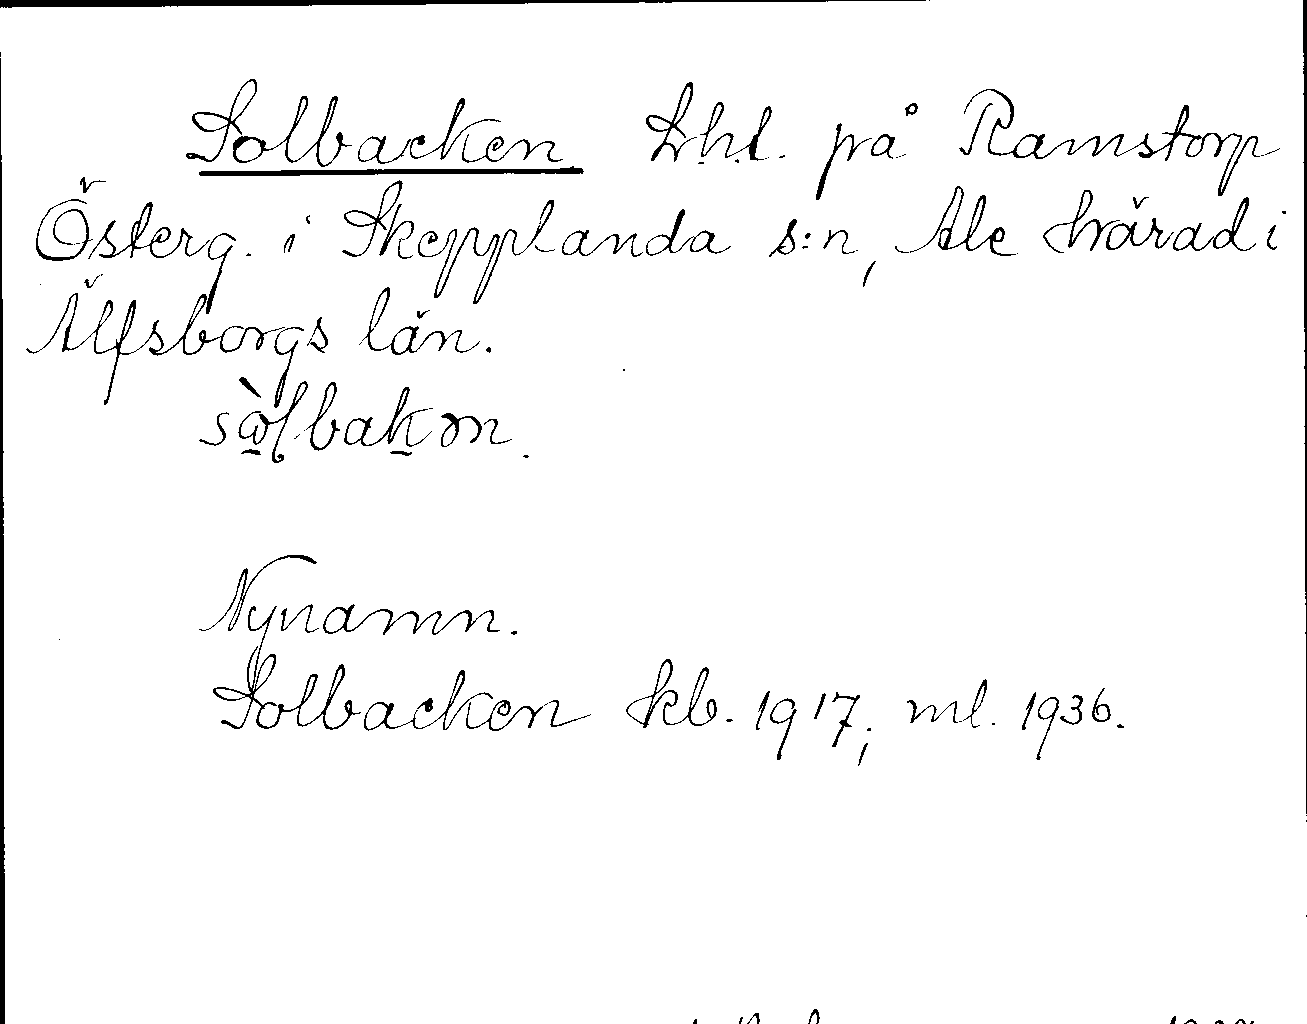 Solbacken. Lht. på Ramstorp
Österg. i Skepplanda s:n, Ale härad i
Älfsborgs län.
sòlbakən.
Nynamn.
Solbacken kb. 1917; ml. 1936.